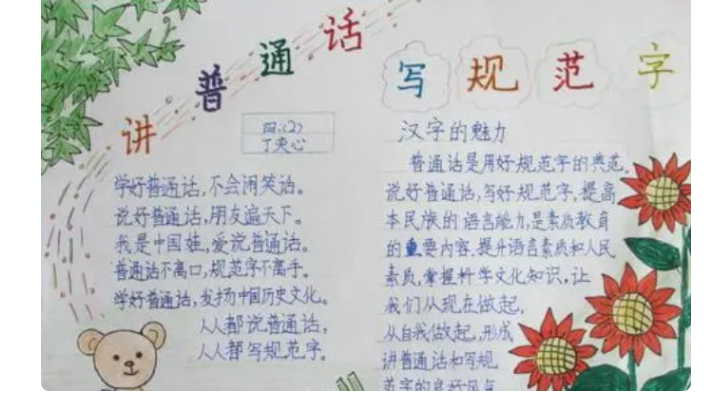 讲普通话
写规范字
四(2)
丁奕心
学好普通话,不会闹笑话。
说好普通话,朋友遍天下。
我是中国娃,爱说普通话。
普通话不离口,规范字不离手。
学好普通话,发扬中国历史文化。
人人都说普通话,
人人都写规范字。
汉字的魅力
普通话是用好规范字的典范。
说好普通话,写好规范字,提高
本民族的语言能力,是素质教育
的重要内容。提升语言素质和人民
素质,掌握科学文化知识,让
我们从现在做起,
从自我做起,形成
讲普通话和写规
范字的良好风气